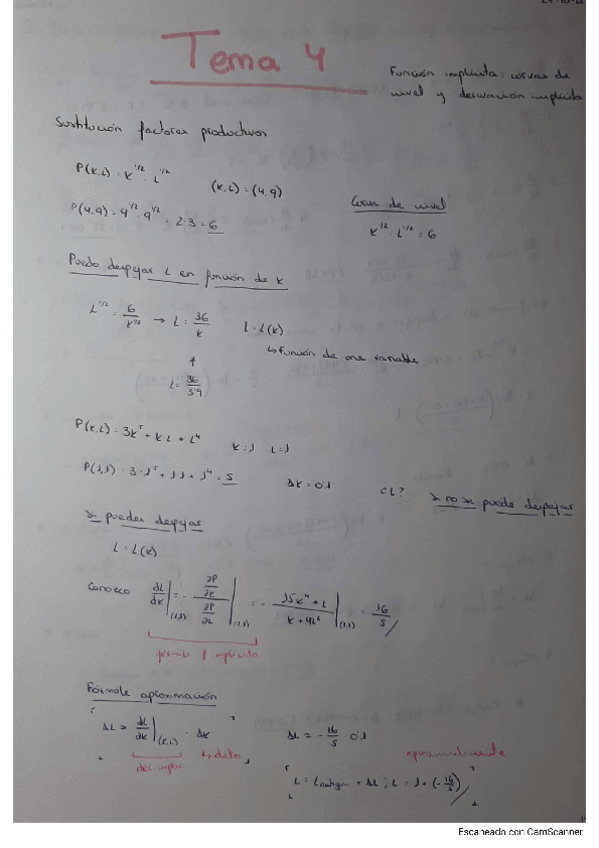 Tema 4
Función implícita: curvas de
nivel y derivación implícita
Sustitución factores productivos
P(K,L) = K^1/2 · L^1/2
(K,L) = (4,9)
P(4,9) = 4^1/2 · 9^1/2 = 2·3 = 6
Curva de nivel
K^1/2 · L^1/2 = 6
Puedo despejar L en función de K
L^1/2 = 6/K^1/2 → L = 36/K L = L(K)
↳ Función de una variable
↑
L = 36/3.9
P(K,L) = 3K^5 + K·L + L^4 K=1 L=1
P(1,1) = 3·1^5 + 1·1 + 1^4 = 5 ΔK = 0.1 ¿L? si no se puede despejar
Si puedes despejar
L = L(K)
Conozco dL/dK |(1,1) = - ∂P/∂K / ∂P/∂L |(1,1) = - 15K^4 + L / K + 4L^3 |(1,1) = 16/5
Fórmula aproximación
ΔL ≈ dL/dK |(K,L) · ΔK ΔL ≈ - 16/5 0.1
↳ dato
aproximadamente
L = Lantiguo + ΔL ; L = 1 + (-16/5)
Escaneado con CamScanner